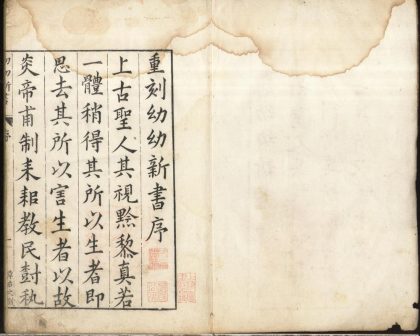 重刻幼幼新書序
上古聖人其視黔黎真若
一體稍得其所以生者即
思去其所以害生者以故
炎帝甫制耒耜教民對執
幼幼新書
序
一